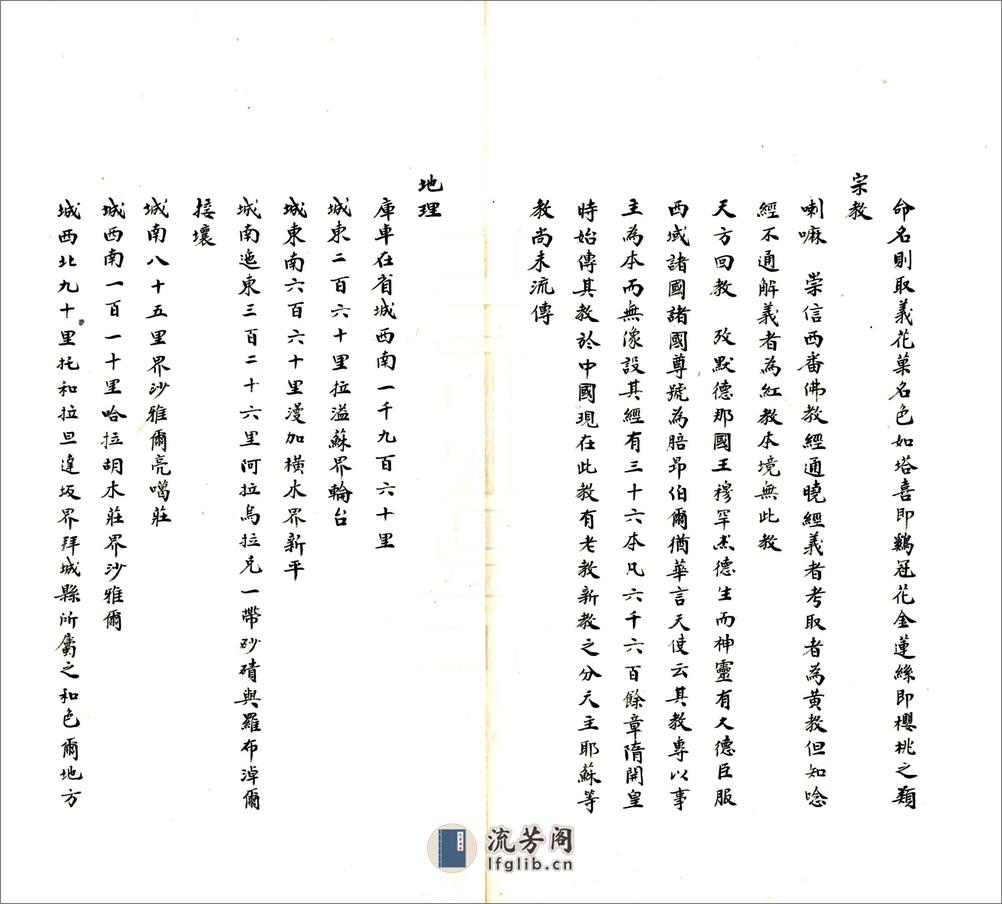 命名則取義花菓名色如塔喜即鷄冠花金蓮絲即櫻桃之類
宗教
喇嘛　崇信西番佛教經通曉經義者考取者為黃教但知唸
經不通解義者為紅教本境無此教
天方回教　攷默德那國王穆罕驀德生而神靈有大德臣服
西域諸國諸國尊號為賠昂伯爾猶華言天使云其教專以事
主為本而無像設其經有三十六本凡六千六百餘章隋開皇
時始傳其教於中國現在此教有老教新教之分天主耶蘇等
教尚未流傳
地理
庫車在省城西南一千九百六十里
城東二百六十里拉溢蘇界輪台
城東南六百六十里漫加橫水界新平
城南迤東三百二十六里阿拉烏拉克一帶砂磧與羅布淖爾
接壤
城南八十五里界沙雅爾亮噶莊
城西南一百一十里哈拉胡木莊界沙雅爾
城西北九十里托和拉旦達坂界拜城縣所屬之和色爾地方
流芳阁
lfglib.cn